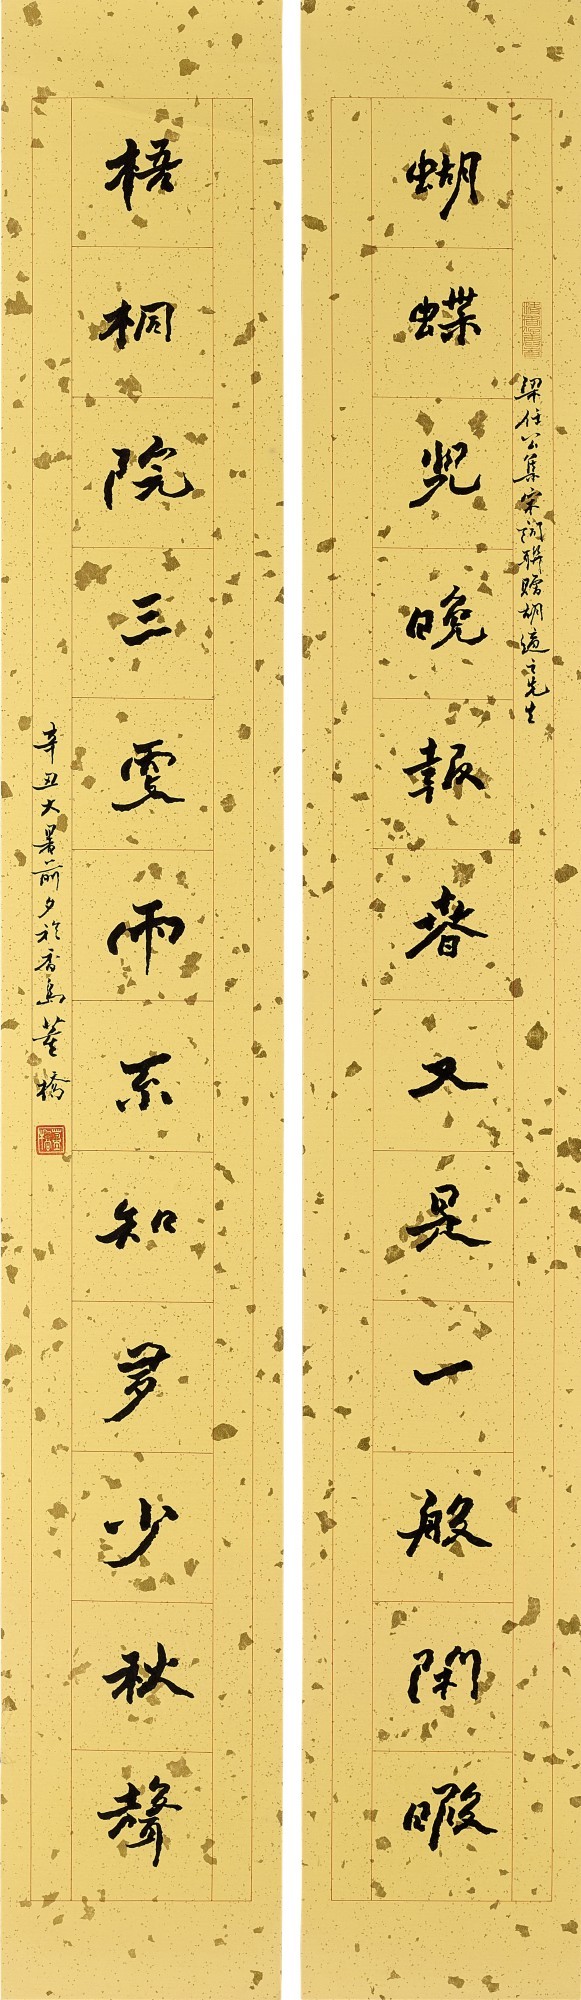 蝴蝶兒晚報春又是一般閑暇
梁任公集宋詞聯贈胡適之先生
梧桐院三更雨不知多少秋聲
辛丑大暑前夕於香島董橋